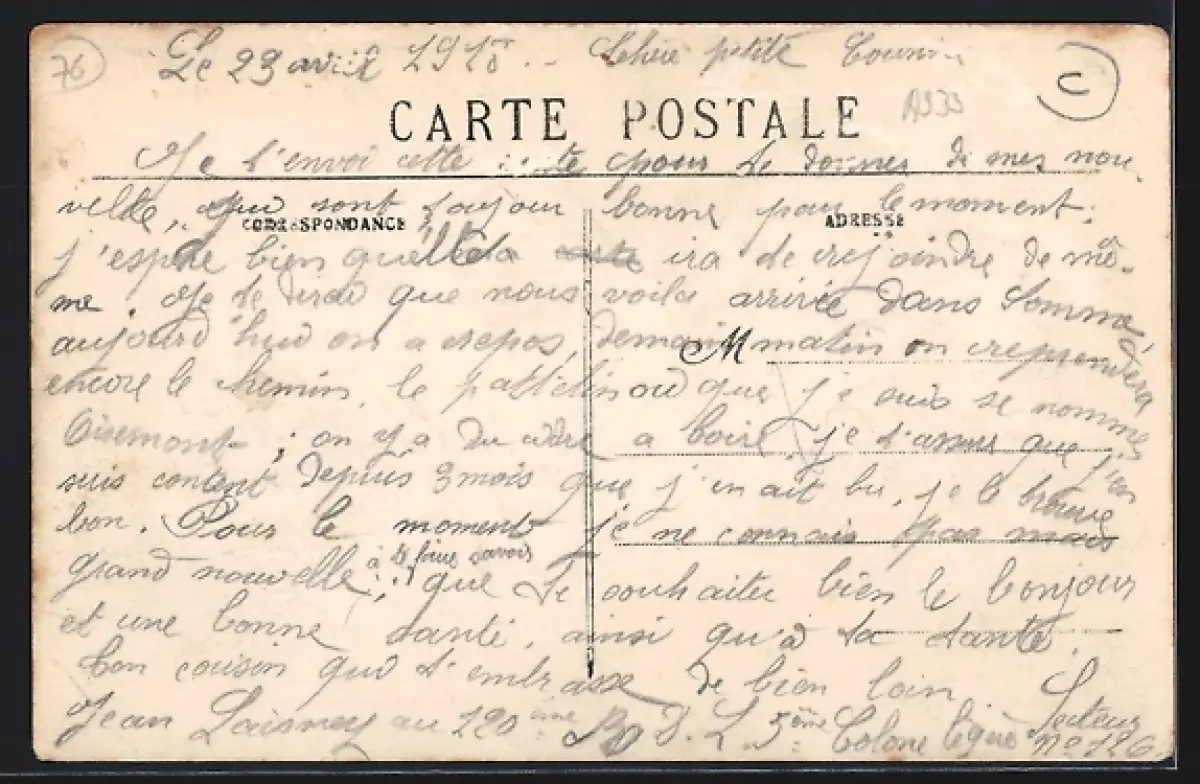 76
Le 23 avril 1918 .. Chère petite Cousine
C
A933
CARTE POSTALE
Je t'envoi cette pour te donner de mes nou-
velle, qui sont toujour bonne pour le moment.
CORRESPONDANCE
ADRESSE
j'espère bien quelle ira te rejoindre de mê-
me. Je te dirai que nous voila arrivée dans Somme,
aujourd'hui on a repos, demain matin on reprendera
M
encore le chemin, le patelin où que je suis se nomme
Oisemont ; on y a du cidre a boire, je t'assure que j'en
suis content depuis 3 mois que j'en ait bu, je le trouve
bon. Pour le moment je ne connais pas
grand nouvelle, à te faire savoir que te souhaiter bien le bonjour
et une bonne santé, ainsi qu'à ta tante.
ton cousin qui t'embrasse de bien loin
Jean Laisney au 120ème D. L 5ème Colone légère Secteur
No 126